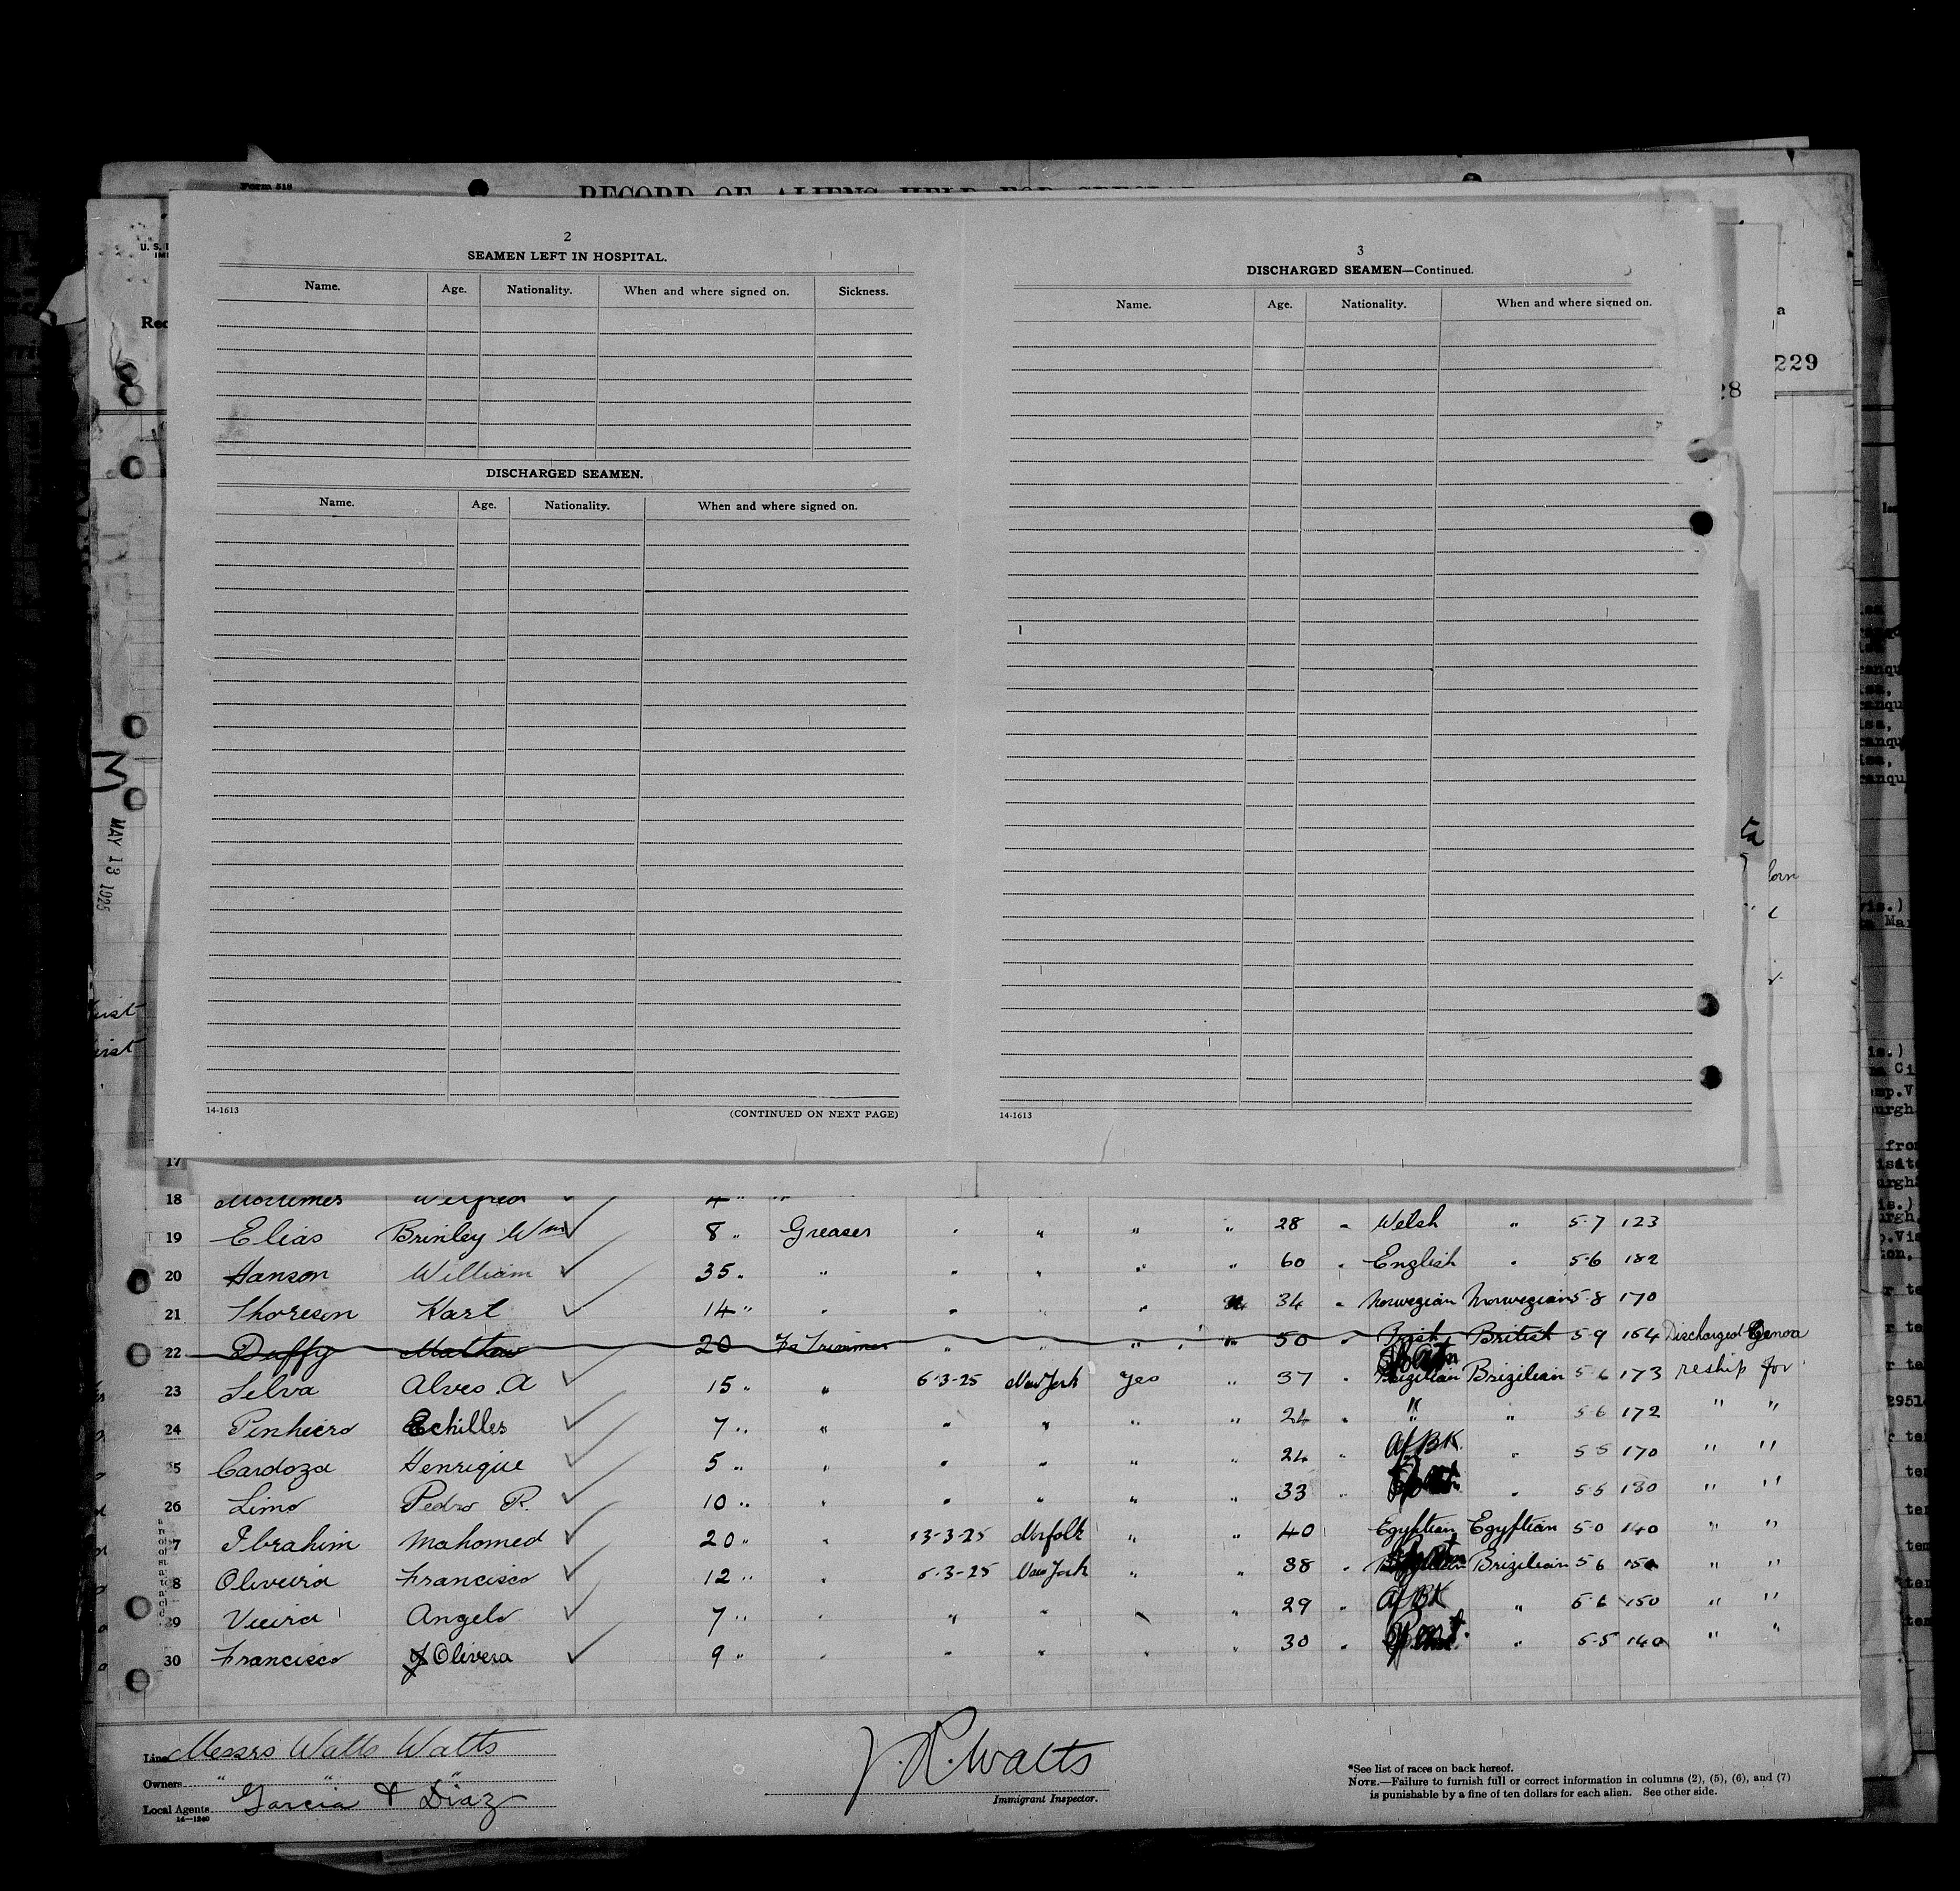 Form 518
RECORD OF ALIENS HELD FOR SPECIAL
2
SEAMEN LEFT IN HOSPITAL.
Name. Age. Nationality. When and where signed on. Sickness.
DISCHARGED SEAMEN.
Name. Age. Nationality. When and where signed on.
14-1613 (CONTINUED ON NEXT PAGE)
3
DISCHARGED SEAMEN—Continued.
Name. Age. Nationality. When and where signed on.
14-1613
229
28
MAY 13 1925
17
18 Mortimer Wilfred 4 "
19 Elias Brinley Wm 8 " Greaser " " " " 28 " Welsh " 5-7 123
20 Hanson William 35 " " " " " " 60 " English " 5-6 182
21 Thoresen Karl 14 " " " " " 34 " Norwegian Norwegian 5-8 170
22 Duffy Mattew 20 Trimmer " " " " 50 " Irish British 5-9 164 Discharged Genoa
23 Selva Alves. A 15 " " 6-3-25 New York Yes " 37 " Brizilian Brizilian 5-6 173 reship for
24 Pinhiero Echilles 7 " " " " " " 24 " " " 5-6 172 " "
25 Cardoza Henrique 5 " " " " " " 24 " Af BK " 5-5 170 " "
26 Limo Pedro R. 10 " " " " " " 33 " " 5-5 180 " "
27 Ibrahim Mahomed 20 " " 13-3-25 Norfolk " " 40 Egyptian Egyptian 5-0 140 " "
28 Oliveira Francisco 12 " " 6-3-25 New York " " 38 " Brizilian 5-6 150 " "
29 Vieira Angelo 7 " " " " " " 29 " Af BK " 5-6 150 " "
30 Francisco J Olivera 9 " " " " " " 30 " " 5-5 140 " "
Line Messrs Watts Watts
Owners " " "
Local Agents Garcia & Diaz
14—1240
J. R. Watts
Immigrant Inspector.
*See list of races on back hereof.
NOTE.—Failure to furnish full or correct information in columns (2), (5), (6), and (7)
is punishable by a fine of ten dollars for each alien. See other side.